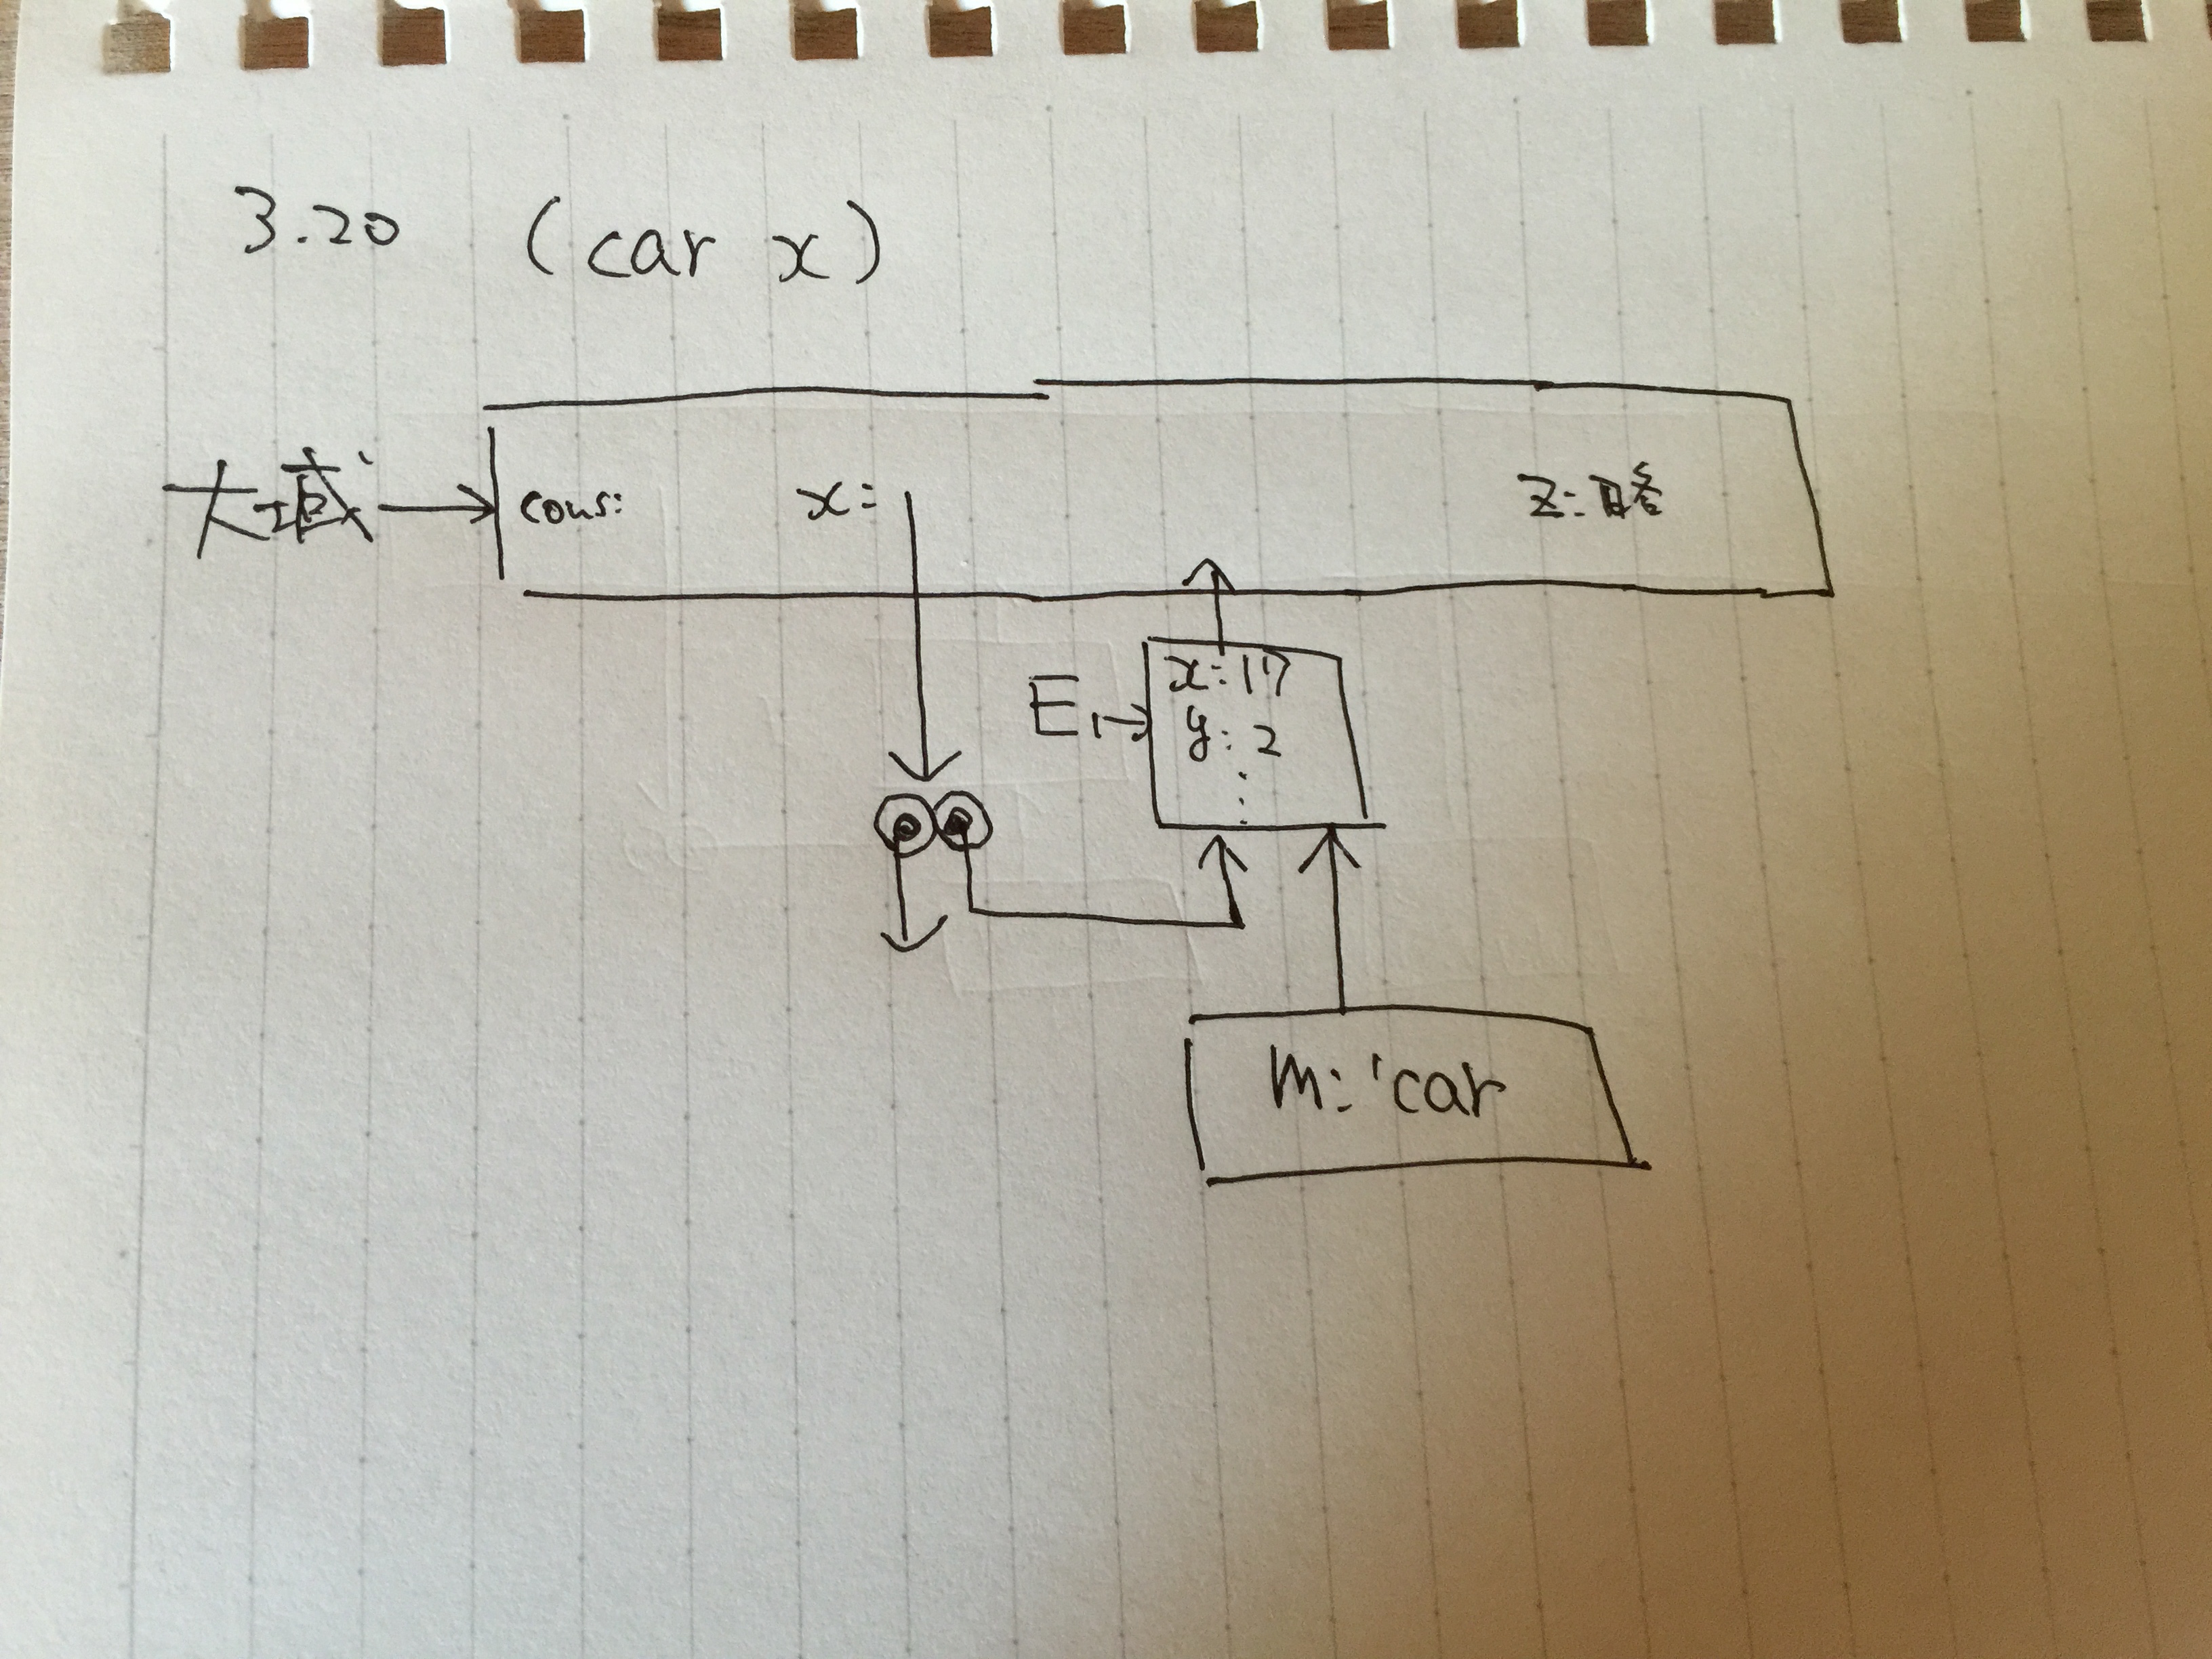 3.20 (car x)
大域 cons: x: z: 略
E1 x: 17
y: 2
m: 'car